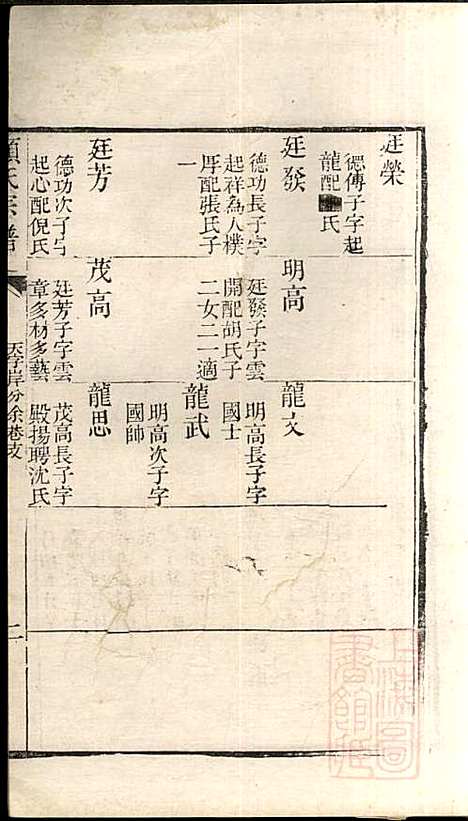 廷榮
德傅子字起
龍配氏
廷發
德功長子字
起祥為人樸
厚配張氏子
一
廷芳
德功次子字
起心配倪氏
明高
廷發子字雲
開配胡氏子
二女二一適
茂高
廷芳子字雲
章多材多藝
龍文
明高長子字
國士
龍武
明高次子字
國帥
龍思
茂高長子字
殿揚聘沈氏
氏宗譜
二
上海圖
書館藏